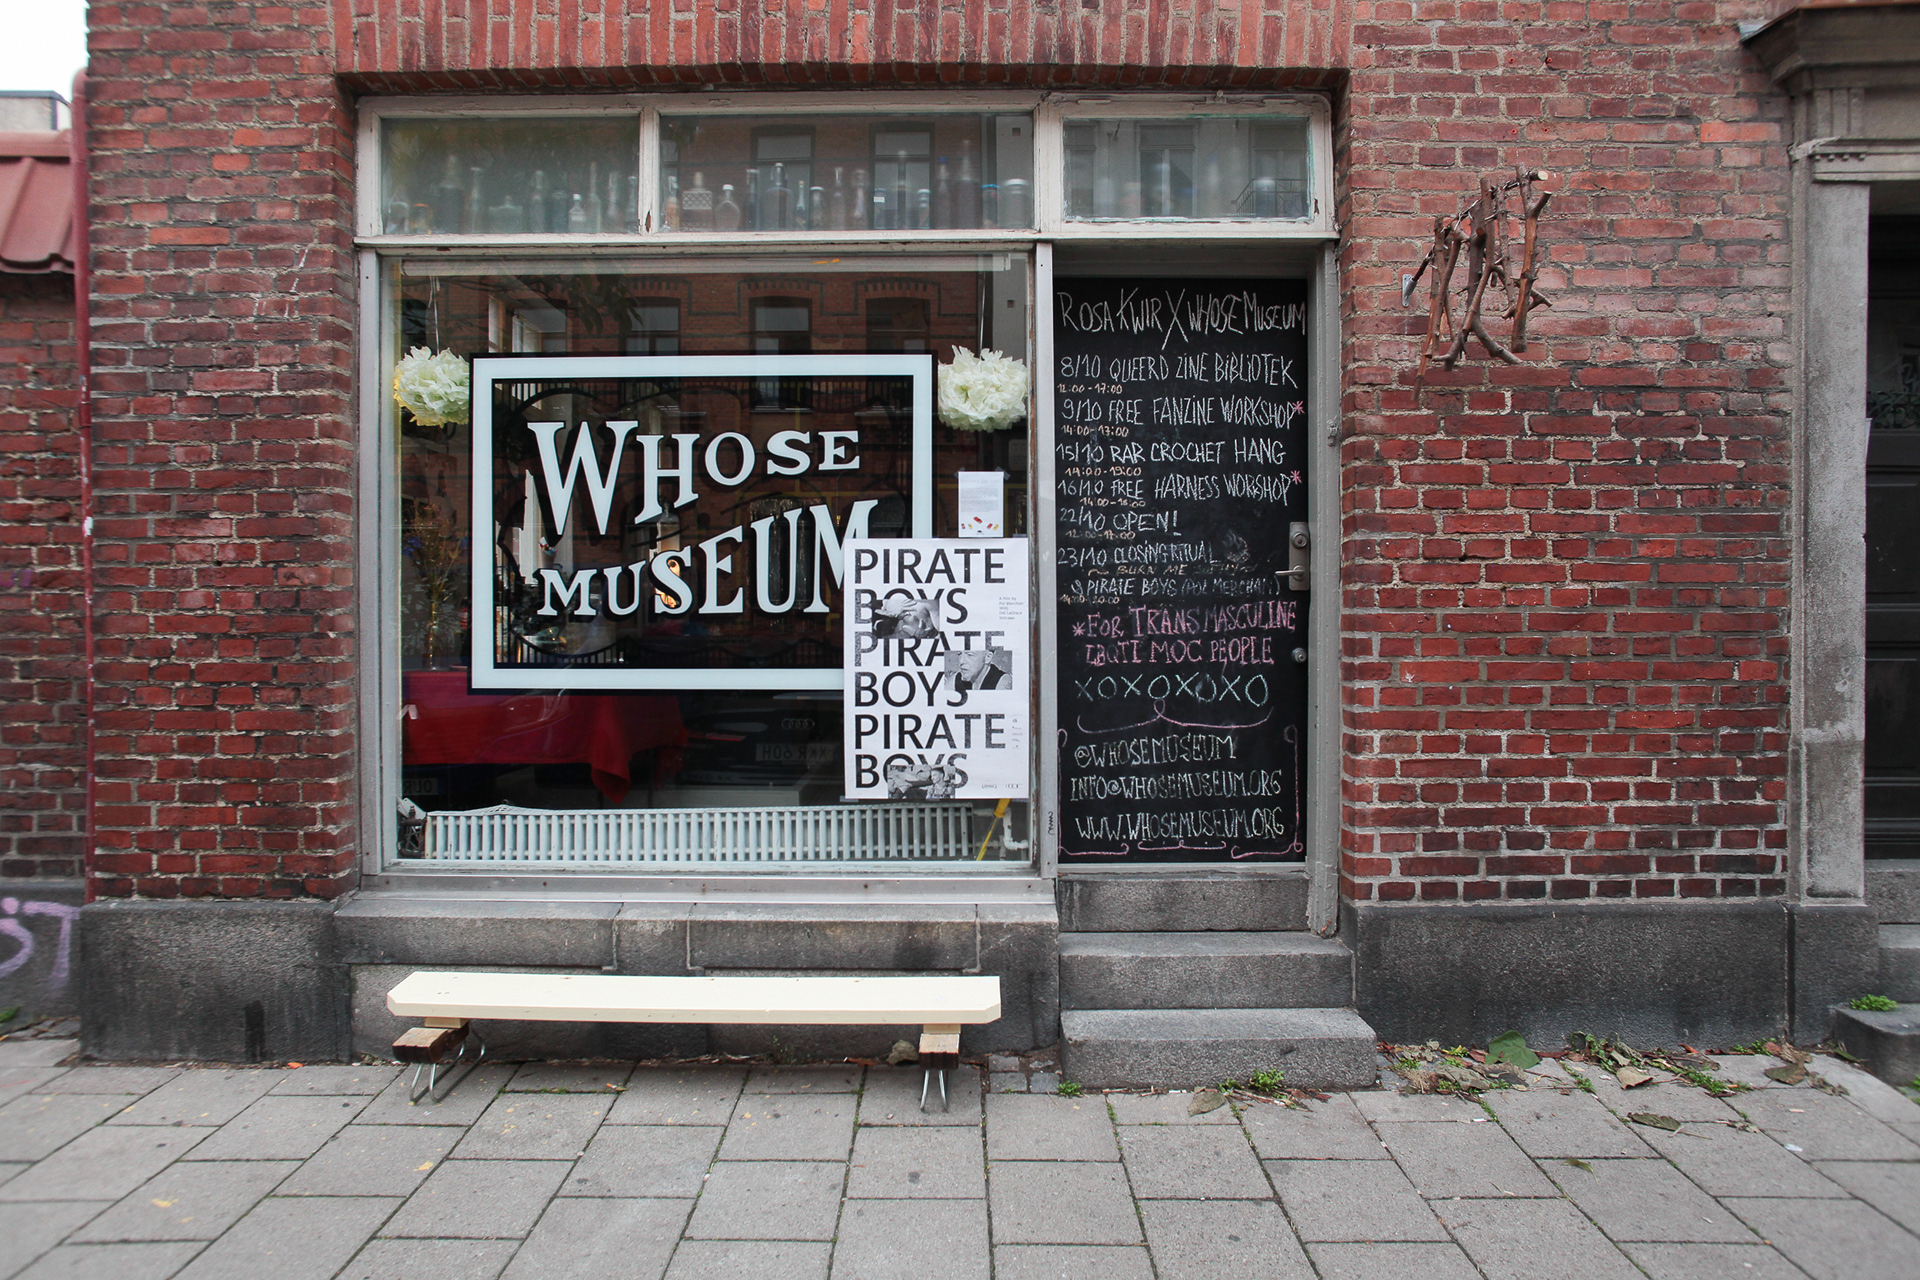 WHOSE
MUSEUM
PIRATE
BOYS
PIRATE
BOYS
PIRATE
BOYS
ROSA KWIR X WHOSE MUSEUM
8/10 QUEERD ZINE BIBLIOTEK
12:00-17:00
9/10 FREE FANZINE WORKSHOP*
14:00-17:00
15/10 RAR CROCHET HANG
14:00-19:00
16/10 FREE HARNESS WORKSHOP*
14:00-16:00
22/10 OPEN!
12:00-17:00
23/10 CLOSING RITUAL
~ BURN ME ~
& PIRATE BOYS (POL MERCHAN)
*FOR TRANS MASCULINE
LBQTI MOC PEOPLE
XOXOXOXO
@WHOSEMUSEUM
INFO@WHOSEMUSEUM.ORG
WWW.WHOSEMUSEUM.ORG